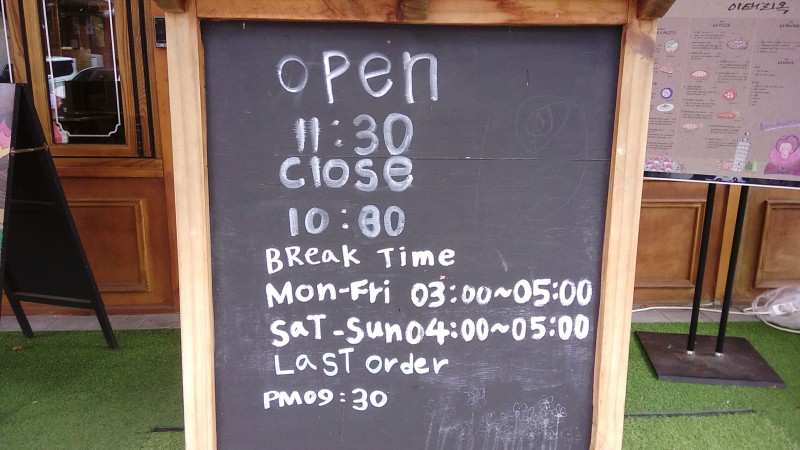 open
11:30
close
10:00
BReak Time
Mon-Fri 03:00~05:00
SaT-Sun 04:00~05:00
LaST order
PM09:30
이태리옥